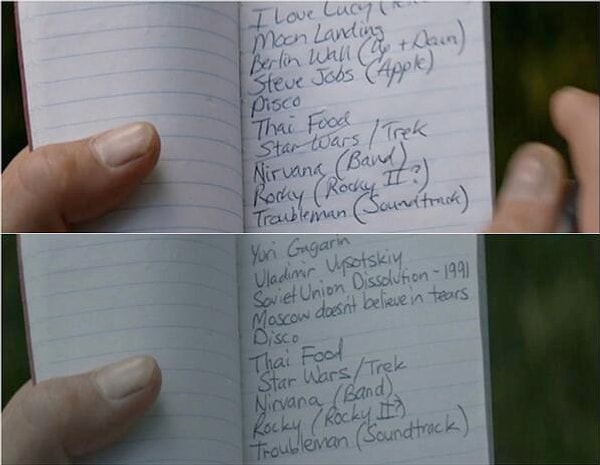 I Love Lucy (
Moon Landing
Berlin Wall (Up + Down)
Steve Jobs (Apple)
Disco
Thai Food
Star Wars / Trek
Nirvana (Band)
Rocky (Rocky II?)
Troubleman (Soundtrack)
Yuri Gagarin
Vladimir Vysotskiy
Soviet Union Dissolution - 1991
Moscow doesn't believe in tears
Disco
Thai Food
Star Wars/Trek
Nirvana (Band)
Rocky (Rocky II?)
Troubleman (Soundtrack)